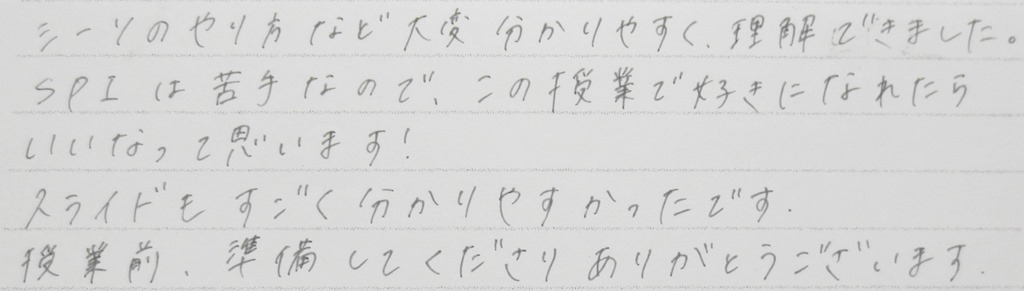 シーツのやり方など大変分かりやすく、理解できました。
SPIは苦手なので、この授業で好きになれたら
いいなって思います!
スライドもすごく分かりやすかったです.
授業前、準備してくださりありがとうございます.